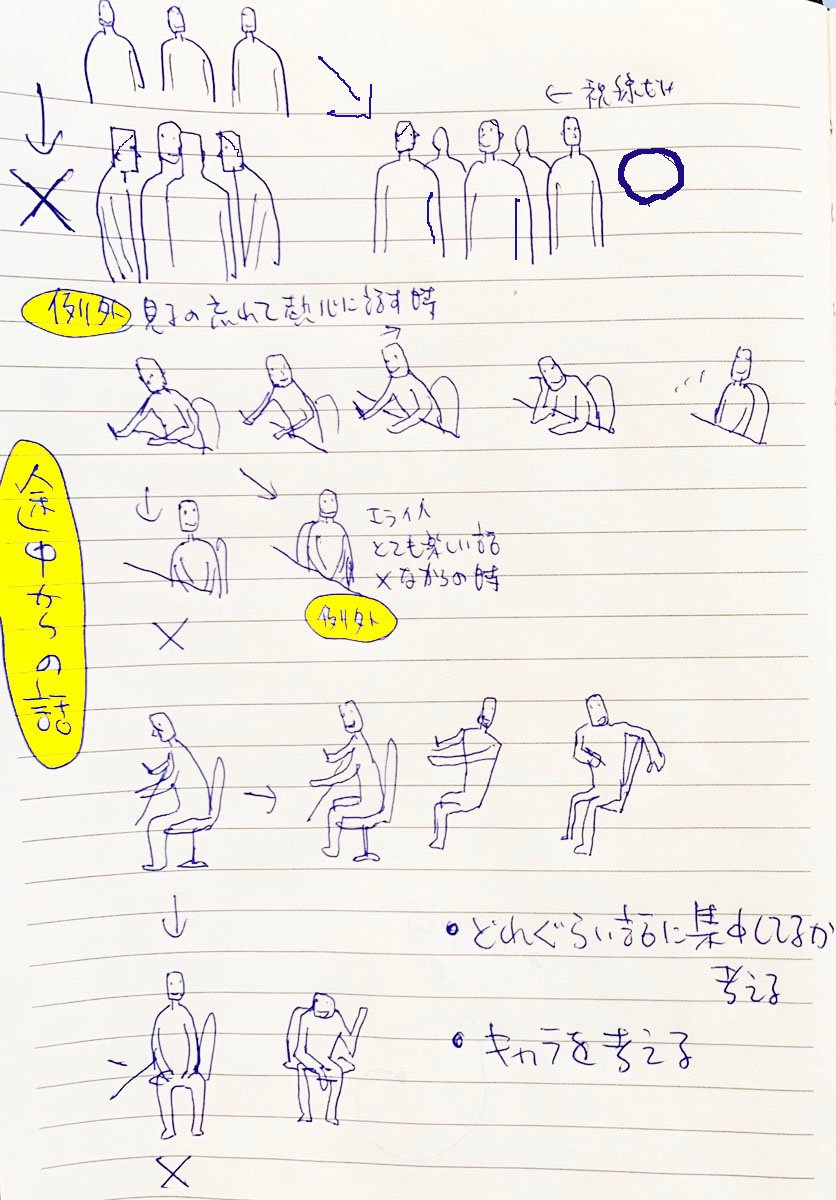 ← 視線だけ
例外 見子の流れて熱心に話す時
途中からの話
エライ人
とても楽しい話
×ながらの時
例外
・どれぐらい話に集中してるか
考える
・キャラを考える